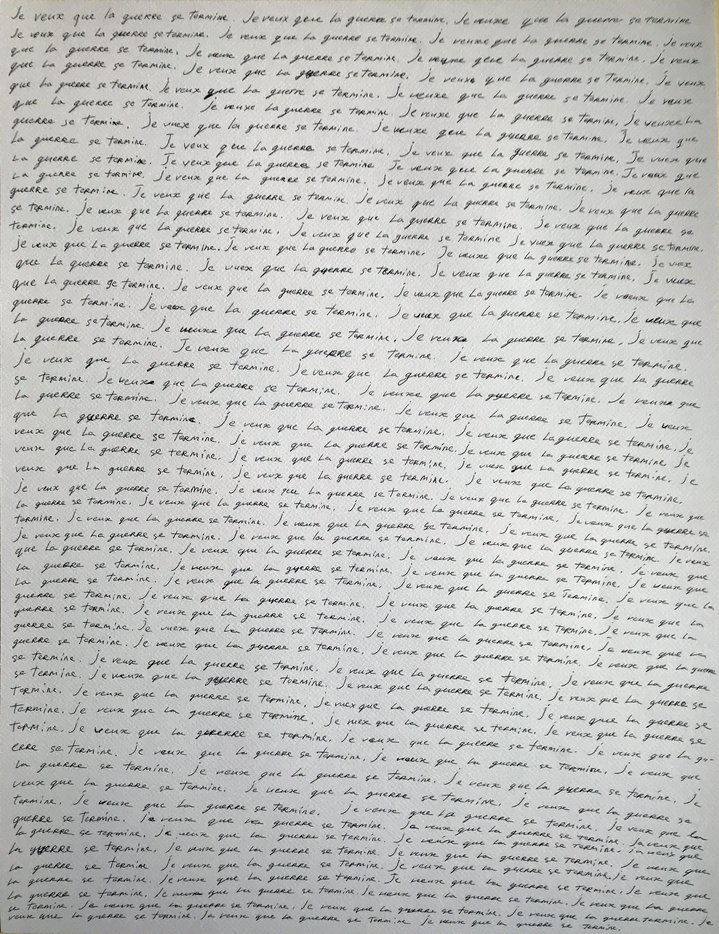 Je veux que la guerre se termine. Je veux que la guerre se termine. Je veuxe que la guerre se termine
Je veux que la guerre se termine. Je veux que la guerre se termine. Je veuxe que la guerre se termine. Je veux
que la guerre se termine. Je veux que la guerre se termine. Je veux que la guerre se termine. Je veux
que la guerre se termine. Je veux que la guerre se termine. Je veux que la guerre se termine. Je veux
que la guerre se termine. Je veux que la guerre se termine. Je veuxe que la guerre se termine. Je veux
que la guerre se termine. Je veuxe La guerre se termine. Je veuxe que La guerre se termine, Je veuxe La
guerre se termine. Je veux que la guerre se termine. Je veuxe que La guerre se termine. Je veux que
La guerre se termine. Je veux que La guerre se termine. Je veux que La guerre se termine. Je veux que
La guerre se termine. Je veux que La guerre se termine Je veux que La guerre se termine. Je veux que
La guerre se termine. Je veux que La guerre se termine. Je veux que La guerre se termine. Je veux que la
guerre se termine. Je veux que La guerre se termine. Je veux que La guerre se termine. Je veux que la guerre
se termine. Je veux que La guerre se termine. Je veux que La guerre se termine. Je veux que La guerre se
termine. Je veux que La guerre se termine. Je veux que La guerre se termine. Je veux que La guerre se termine.
Je veux que La guerre se termine. Je veux que La guerre se termine. Je veux que La guerre se termine. Je veux
que La guerre se termine. Je veux que La guerre se termine. Je veux que La guerre se termine. Je veux
que La guerre se termine. Je veux que La guerre se termine. Je veux que La guerre se termine. Je veux que La
guerre se termine. Je veux que La guerre se termine. Je veux que La guerre se termine. Je veux que
La guerre se termine. Je veuxe que La guerre se termine. Je veux La guerre se termine. Je veux que
La guerre se termine. Je veux que La guerre se termine. Je veux que La guerre se termine.
Je veux que La guerre se termine. Je veux que La guerre se termine. Je veux que La guerre
se termine. Je veux que La guerre se termine. Je veux que La guerre se termine. Je veux que
La guerre se termine. Je veux que La guerre se termine. Je veux que La guerre se termine. Je veux
que La guerre se termine. Je veux que La guerre se termine. Je veux que La guerre se termine. Je
veux que La guerre se termine. Je veux que La guerre se termine. Je veux que La guerre se termine. Je
veux que La guerre se termine. Je veux que La guerre se termine. Je veux que La guerre se termine. Je
veux que La guerre se termine. Je veux que La guerre se termine. Je veux que La guerre se termine.
Je veux que La guerre se termine. Je veux que La guerre se termine. Je veux que La guerre se termine. Je veux que
La guerre se termine. Je veux que La guerre se termine. Je veux que La guerre se termine. Je veux que La guerre se
termine. Je veux que La guerre se termine. Je veux que La guerre se termine. Je veux que La guerre se termine.
Je veux que La guerre se termine. Je veux que La guerre se termine. Je veux que La guerre se termine. Je veux
que La guerre se termine. Je veux que La guerre se termine. Je veux que La guerre se termine. Je veux que
La guerre se termine. Je veux que La guerre se termine. Je veux que La guerre se termine. Je veux que
La guerre se termine. Je veux que La guerre se termine. Je veux que La guerre se termine. Je veux que La
guerre se termine. Je veux que La guerre se termine. Je veux que La guerre se termine. Je veux que La
guerre se termine. Je veux que La guerre se termine. Je veux que La guerre se termine. Je veux que La
guerre se termine. Je veux que La guerre se termine. Je veux que La guerre se termine. Je veux que La guerre
se termine. Je veux que La guerre se termine. Je veux que La guerre se termine. Je veux que La guerre
se termine. Je veux que La guerre se termine. Je veux que La guerre se termine. Je veux que La guerre se
termine. Je veux que La guerre se termine. Je veux que La guerre se termine. Je veux que La guerre se
termine. Je veux que La guerre se termine. Je veux que La guerre se termine. Je veux que La guerre se
termine. Je veux que La guerre se termine. Je veux que La guerre se termine. Je veux que La gu-
erre se termine. Je veux que La guerre se termine. Je veux que La guerre se termine. Je veux que
La guerre se termine. Je veux que La guerre se termine. Je veux que La guerre se termine. Je
veux que La guerre se termine. Je veux que La guerre se termine. Je veux que La guerre se
termine. Je veux que La guerre se termine. Je veux que La guerre se termine. Je veux que La
guerre se termine. Je veux que La guerre se termine. Je veux que La guerre se termine. Je veux que
La guerre se termine. Je veux que La guerre se termine. Je veux que La guerre se termine. Je veux que
La guerre se termine. Je veux que La guerre se termine. Je veux que La guerre se termine. Je veux que
La guerre se termine. Je veux que La guerre se termine. Je veux que La guerre se termine. Je veux que
La guerre se termine. Je veux que La guerre se termine. Je veux que La guerre se termine. Je veux que La guerre
se termine. Je veux que La guerre se termine. Je veux que La guerre se termine. Je veux que La guerre termine. Je
veux que La guerre se termine. Je veux que La guerre se termine Je veux que La guerre se termine.